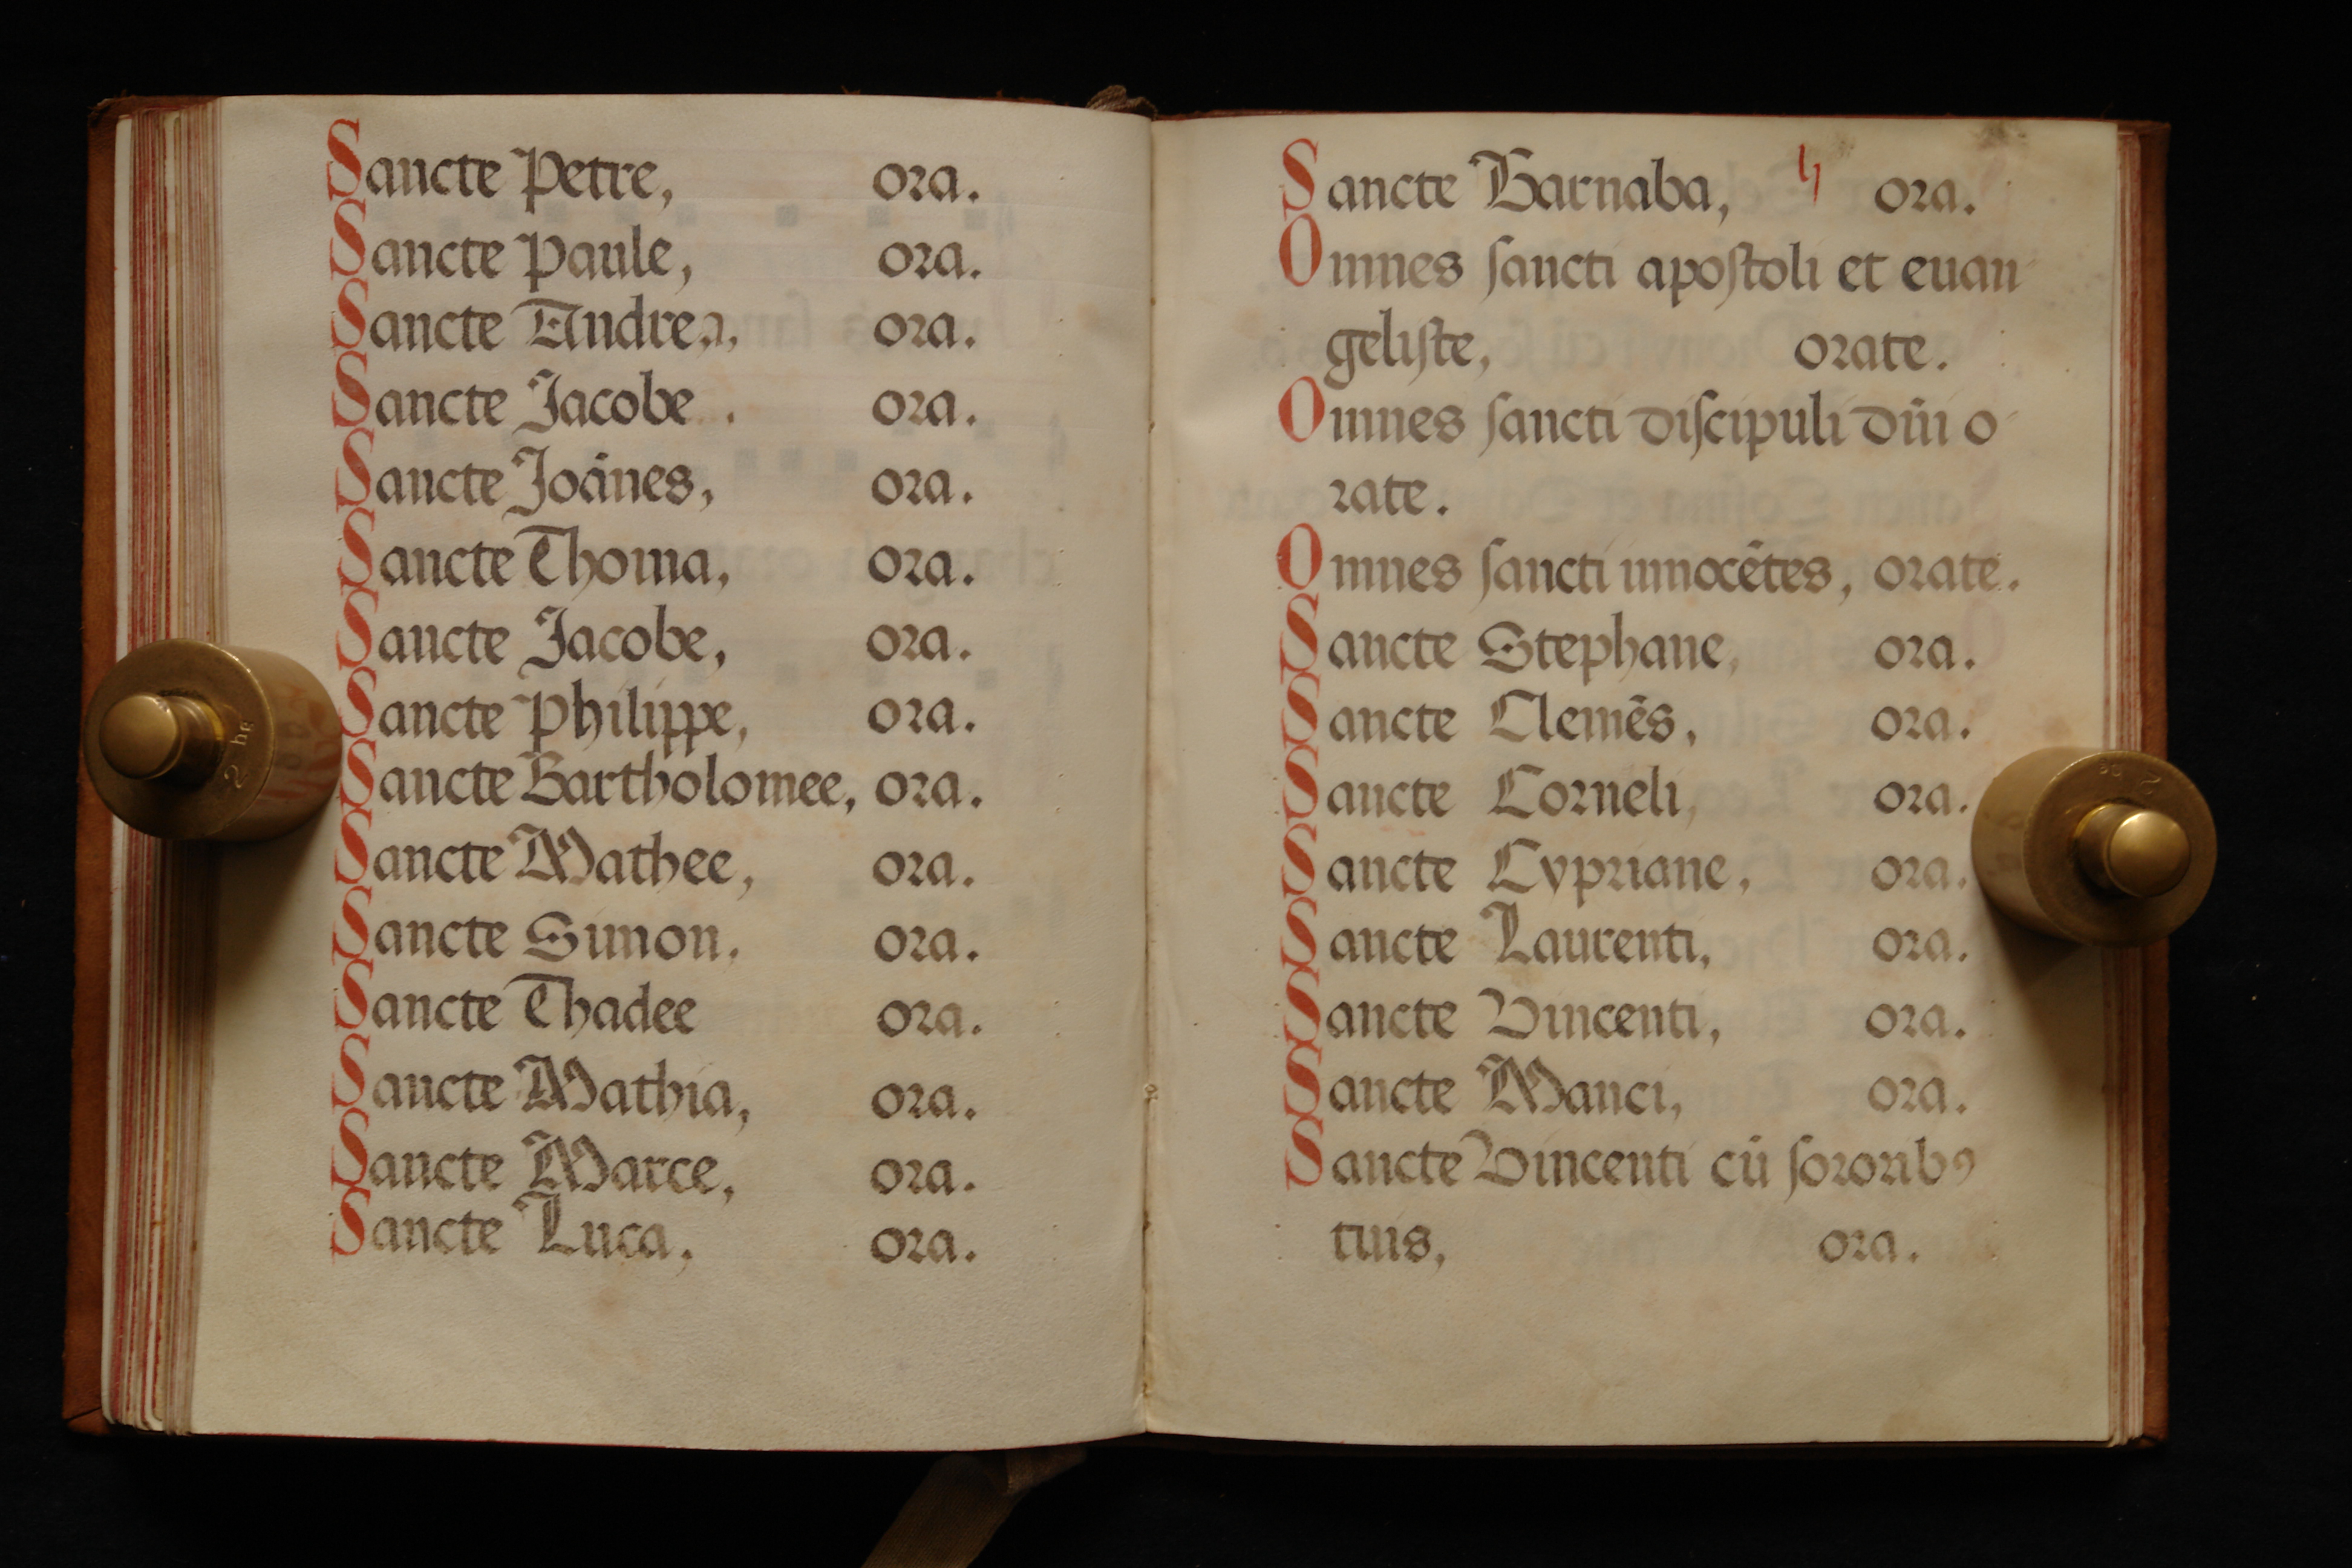 Sancte Petre, ora.
Sancte Paule, ora.
Sancte Andrea, ora.
Sancte Jacobe. ora.
Sancte Joãnes, ora.
Sancte Thoma, ora.
Sancte Jacobe, ora.
Sancte Philippe, ora.
Sancte Bartholomee, ora.
Sancte Mathee, ora.
Sancte Simon, ora.
Sancte Thadee ora.
Sancte Mathia, ora.
Sancte Marce, ora.
Sancte Luca, ora.
Sancte Barnaba, ora.
Omnes ſancti apoſtoli et euan
geliſte, orate.
Omnes ſancti diſcipuli dñi o
rate.
Omnes ſancti innocẽtes, orate.
Sancte Stephane, ora.
Sancte Clemẽs, ora.
Sancte Corneli, ora.
Sancte Cypriane, ora.
Sancte Laurenti, ora.
Sancte Vincenti, ora.
Sancte Manci, ora.
Sancte Vincenti cũ ſororibꝰ
tuis, ora.
2 hg